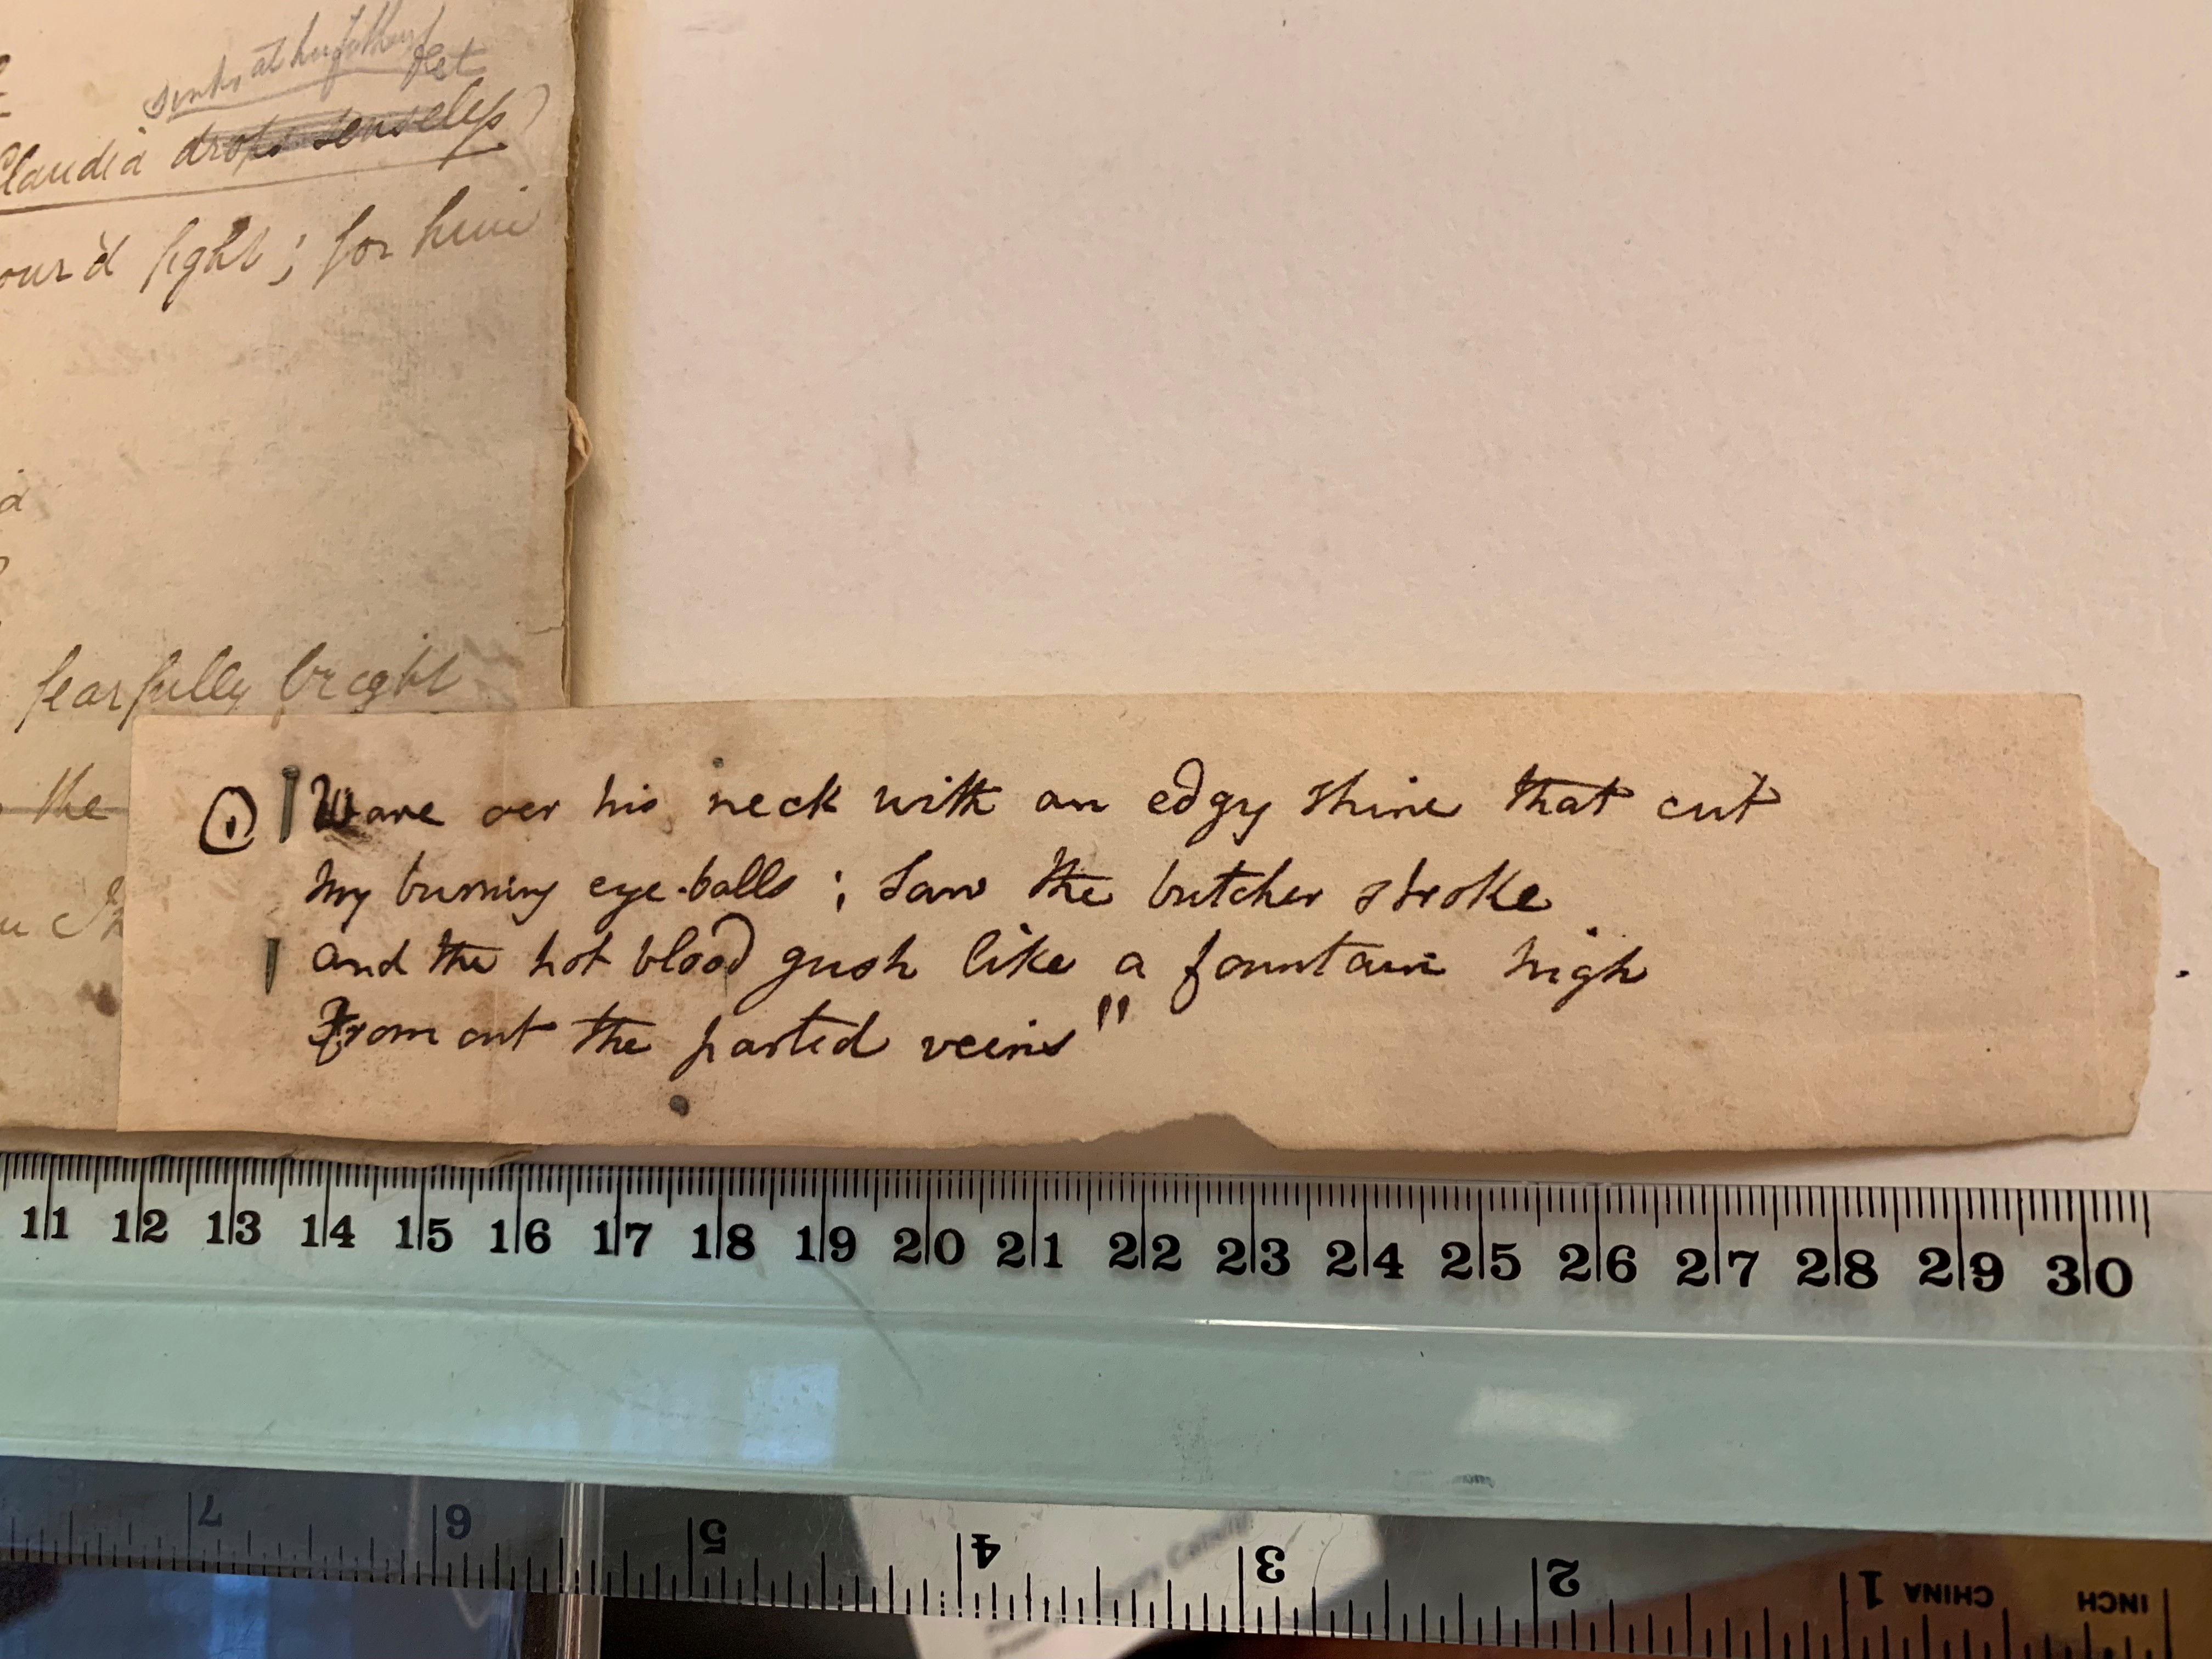 sinks at her father's
feet
Claudia drops senseless)
our'd fight; for him
a
fearfully bright
the
Wave oer his neck with an edgy shine that cut
My burning eye-balls; Saw the butcher stroke
and the hot blood gush like a fountain high
From out the parted veins"
11 12 13 14 15 16 17 18 19 20 21 22 23 24 25 26 27 28 29 30
7 6 5 4 3 2 1 CHINA INCH